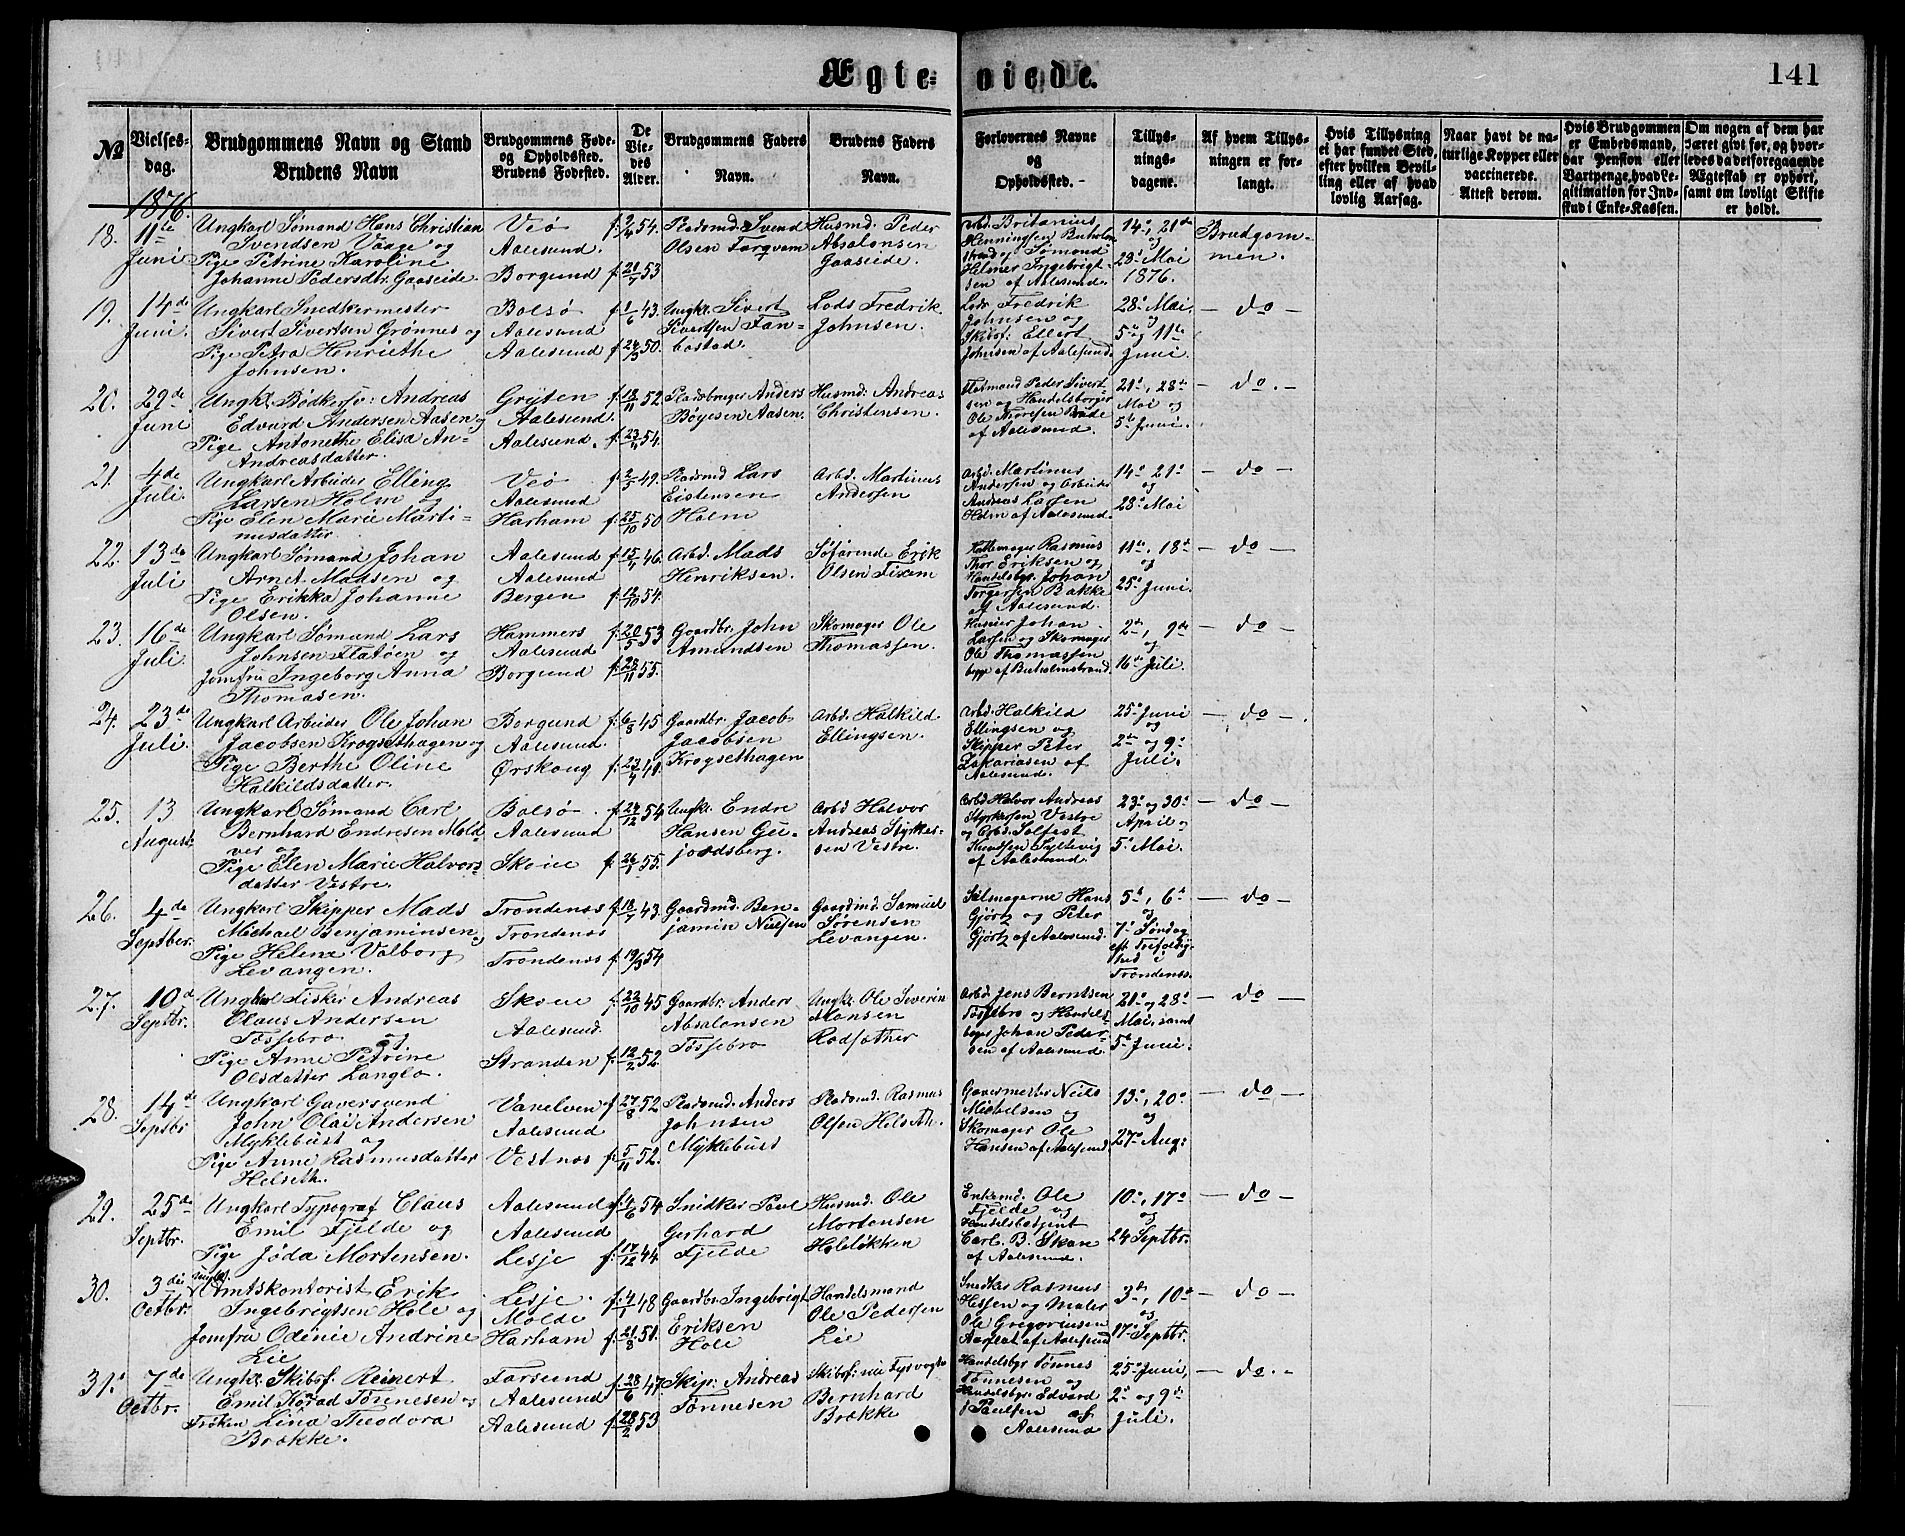 Ægte- viede.
141
№
Vielses-
dag.
Brudgommens Navn og Stand
Brudens Navn
Brudgommens Føde-
og Opholdssted.
Brudens Fødested.
De
Vie-
des
Alder.
Brudgommens Faders
Navn.
Brudens Faders
Navn.
Forlovernes Navne
og
Opholdssted.
Tillys-
nings-
dagene.
Af hvem Tillys-
ningen er for-
langt.
Hvis Tillysning
ei har fundet Sted,
efter hvilken Bevil-
ling eller af hvad
lovlig Aarsag.
Naar havt de na-
turlige Kopper eller
vaccinerede.
Attest derom.
Hvis Brudgommen
er Embedsmand,
har Pension eller
Vartpenge, hvad Le-
gitimation for Ind-
skud i Enke-Kassen.
Om nogen af dem har
været givt før, og hvor-
ledes da det foregaaende
Ægteskab er ophørt,
samt om lovligt Skifte
er holdt.
1876.
18.
11te
Juni
Ungkarl Sømand Hans Christian
Svendsen Vaage og
Pige Petrine Karoline
Johanne Pedersdtr. Gaaseide.
Veø
Aalesund.
Borgund
f. 2/4 54.
f. 21/7 53
Pladsmd. Svend
Olsen Torgvam
Husmd. Peder
Absalonsen
Gaaseide.
Arbd. Britanius
Henningsen Buholm
strand og Sømand
Helmer Ingebrigt-
sen af Aalesund.
14de, 21de
og
28de Mai
1876.
Brudgom-
men.
19.
14de
Juni.
Ungkarl Snedkermester
Sivert Sivertsen Grønnes og
Pige Petra Henriethe
Johnsen.
Bolsø
Aalesund
Aalesund
f. 1/6 43.
f. 24/3 50.
Ungk. Sivert
Sivertsen Tan-
bostad.
Lods Fredrik
Johnsen.
Lods Fredrik
Johnsen og
Skibsf: Ellert
Johnsen af Aalesund.
28de Mai,
5te og 11te
Juni.
— do —
20.
29de
Juni
Ungk. Bødkersv: Andreas
Edvard Andersen Aasen og
Pige Antonethe Elisa An-
Andreasdatter.
Grytten
Aalesund.
Aalesund.
f. 18/11 52.
f. 23/4 54.
Pladsbruger Anders
Bøyesen Aasen.
Husmd: Andreas
Christensen.
Flotmand Peder Sivert-
sen og Handelsborger
Ole Thoresen Brude
af Aalesund.
21de, 28de
Mai og
5te Juni.
— do. —
21.
4de
Juli.
Ungkarl Arbeider Elling
Larsen Holm og
Pige Elen Marie Marti-
nusdatter.
Veø
Aalesund
Harham
f. 2/5 49.
f. 25/10 50
Pladsmd Lars
Eistensen
Holm
Arbd. Martinus
Andersen
Arbd. Martinus
Andersen og Arbeider
Andreas Larsen
Holm af Aalesund.
14de 21de
og
28de Mai
— do —
22.
13de
Juli
Ungkarl Sømand Johan
Arnet Madsen og
Pige Erikka Johanne
Olsen.
Aalesund
Aalesund
Bergen
f. 15/7 46.
f. 12/10 54.
Arbd. Mads
Henriksen.
Søfarende Erik
Olsen Fixem
Hattemager Rasmus
Thor Eriksen og
Handelsbgr. Johan
Torgersen Bakke
af Aalesund.
11te, 18de
og
25de Juni.
— do —
23.
16de
Juli.
Ungkarl Sømand Lars
Johnsen Flatøen og
Jomfru Ingeborg Anna
Thomasen.
Hammers
Aalesund
Borgund
f. 20/5 53
f. 28/11 55.
Gaardbr. John
Amundsen
Skomager Ole
Thomassen.
Johan
Larsen og Skomager
Ole Thomassen
begge af Buholmstrand.
2den, 9de
og
16de Juli.
— do —
24.
23de
Juli.
Ungkarl Arbeider Ole Johan
Jacobsen Krogsethagen og
Pige Berthe Oline
Halkildsdatter.
Borgund
Aalesund.
Ørskoug
f. 6/8 45
f. 23/4 49.
Gaardbr. Jacob
Jacobsen
Krogsethagen
Arbd. Halkild
Ellingsen.
Arbd. Halkild
Ellingsen og
Skipper Peter
Zakariasen af
Aalesund.
25de Juni
og
2den og 9de
Juli.
— do —.
25.
13
August.
Ungkarl Sømand Carl
Bernhard Endresen Mold
ver og
Pige Elen Marie Halvors-
datter Vestre.
Bolsø
Aalesund
Skoue
f. 24/12 54
f. 26/1 55.
Ungk. Endre
Hansen Gui-
jordsberg.
Arbd Halvor
Andreas Styrkes-
sen Vestre.
Arbd Halvor Andreas
Styrkesen Vestre
og Arbd. Solfest
Knudsen Syltevig
af Aalesund.
23de og 30te
April og
5te Mai.
— do —
26.
4de
Septber.
Ungkarl Skipper Mads
Michael Benjaminsen og
Pige Helene Valborg
Levangen.
Trondenes
Trondenes
Trondenes
f. 18/7 43.
f. 19/3 54
Gaardmd. Ben-
jamin Nielsen
Gaardmd. Samuel
Sørensen
Levangen.
Seilmagerne Hans
Gjørtz og Peter
Gjørtz af Aalesund.
5te, 6te
og
7de Søndag
eft Trefoldig-
hed i
Trondenes.
— do —
27.
10de
Septbr.
Ungkarl Fisker Andreas
Claus Andersen
Tossebro og
Pige Anne Petrine
Olsdatter Langlo.
Skoue
Aalesund.
Stranden
f. 22/10 45
f. 12/2 52.
Gaardbr. Anders
Absalonsen
Tossebro
Ungk. Ole Severin
Monsen
Rødsøther
Arbd. Jens Berntsen
Tossebro og Handels-
bgr Johan Peder-
sen af Aalesund.
21de og 28de
Mai, samt
5te Juni.
— do —
28.
14de
Septbr
Ungkarl Garversvend
John Olai Andersen
Myklebust og
Pige Anne Rasmusdatter
Helseth.
Vanelven
Aalesund
Vestnes
f. 27/8 52
f. 5/11 52.
Pladsmd. Anders
Johnsen
Myklebust
Pladsmd. Rasmus
Olsen Helseth.
Garvermester Neils
Michelsen og
Skomager Ole
Hansen af Aalesund.
13de, 20de
og
27de Aug:
— do —
29.
25de
Septbr.
Ungkarl Typograf Claus
Emil Fjelde og
Pige Jøda Mortensen.
Aalesund
Aalesund
Lesje
f. 4/6 54
f. 17/12 44.
Snidker Paul
Gerhard
Fjelde
Husmd. Ole
Mortensen
Holeløkken
Enkemd. Ole
Fjelde og
Handelsbetjent
Carl. B. Skare
af Aalesund.
10de, 17de
og
24 Septbr.
— do —
30.
3die
Octbr.
Ungkl.
Amtskontorist Erik
Ingebrigtsen Hole og
Jomfru Odinie Andrine
Lie
Lesje.
Molde
Harham
f. 4/1 48
f. 21/8 51.
Gaardbr. Ingebrigt
Eriksen
Hole
Handelsmand
Ole Pedersen
Lie
Snedker Rasmus
Hessen og Maler
Ole Gregoriusen
Aarflot af Aalesund
3die, 10de
og
17de Septbr.
— do —
31.
7de
Octbr.
Ungk. Skibsf. Reinert
Emil Konrad Tønnesen og
Frøken Lina Theodora
Brokke.
Farsund
Aalesund
Aalesund
f. 28/6 47.
f. 28/2 53
Skipr. Andreas
Tønnesen
Skibsf: nu Fyrvogter
Bernhard
Brokke
Handelsbgr Tønnes
Tønnesen og
Handelsbgr. Edvard
Paulsen af
Aalesund
25de Juni,
2den og 9de
Juli.
— do. —